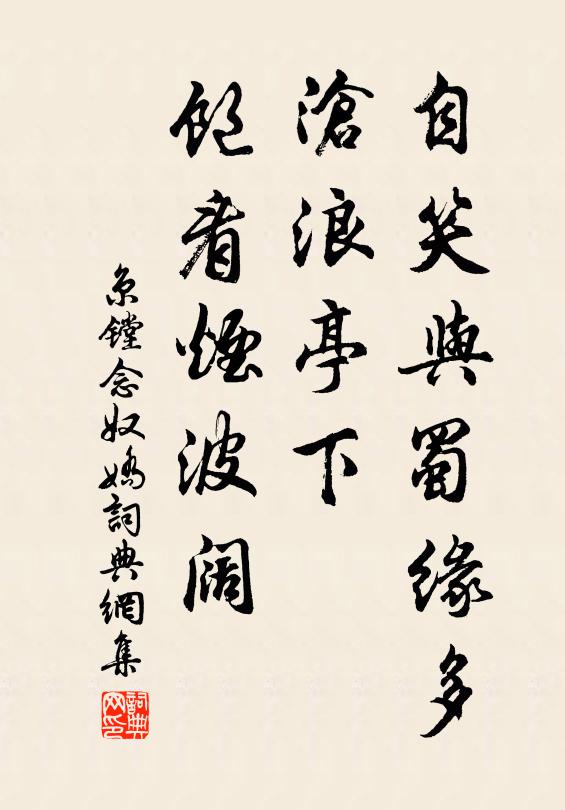 自笑與蜀緣多
滄浪亭下
飽看煙波闊
京鏜念奴嬌詞典網集
詞典
网印